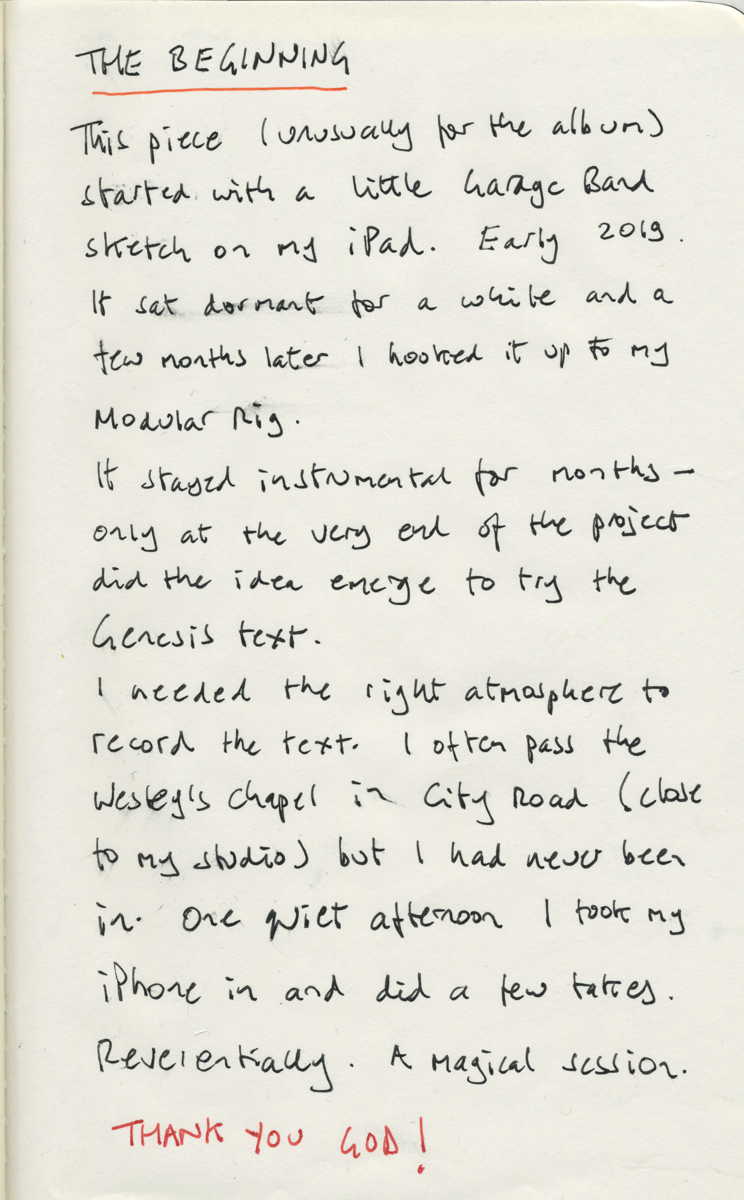 THE BEGINNING
This piece (unusually for the album)
started with a little Garage Band
sketch on my iPad. Early 2019.
It sat dormant for a while and a
few months later I hooked it up to my
Modular Rig.
It stayed instrumental for months –
only at the very end of the project
did the idea emerge to try the
Genesis text.
I needed the right atmosphere to
record the text. I often pass the
Wesley's Chapel in City Road (close
to my studio) but I had never been
in. One quiet afternoon I took my
iPhone in and did a few takes.
Reverentially. A magical session.
THANK YOU GOD!